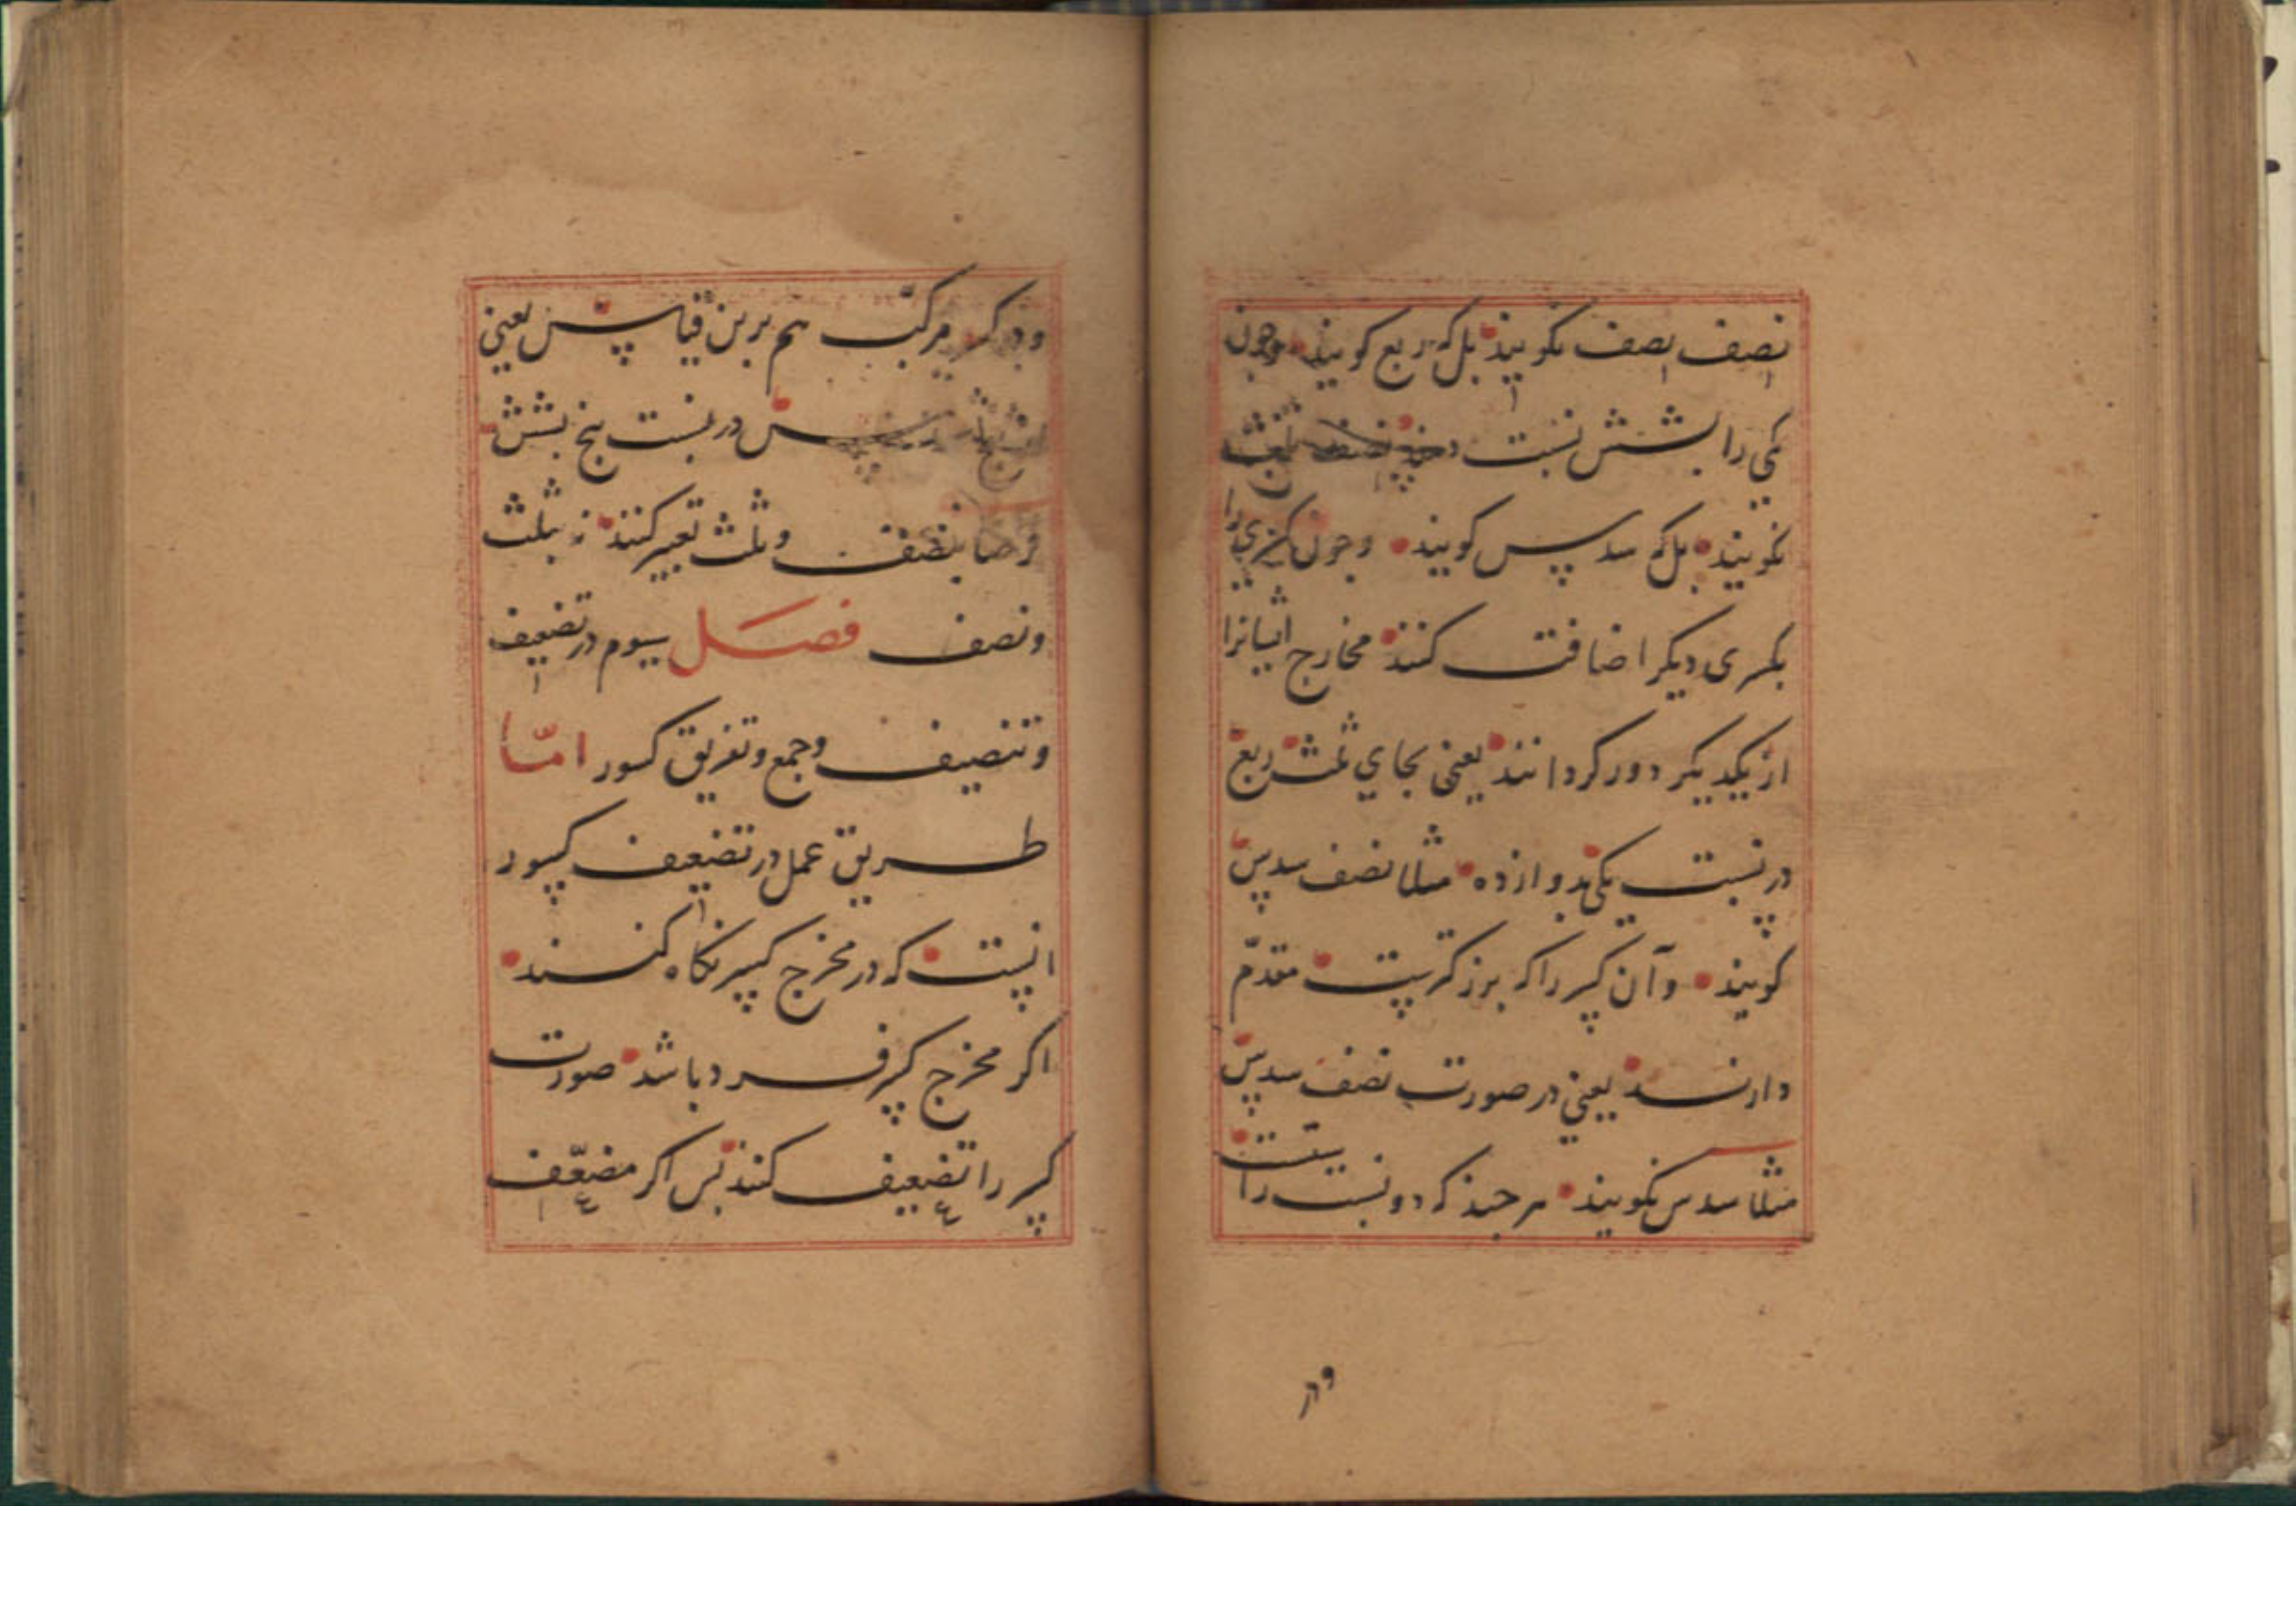 نصف نصف نکویند بل که ربع کویند وچون
یکی را بشش نسبت دهند نصف ثلث
نکویند بل که سدس کویند وچون کسری را
بکسری دیکر اضافت کنند مخارج ایشانرا
از یکدیکر دور کردانند یعنی بجای ثلث ربع
در نسبت یکی بدوازده مثلا نصف سدس
کویند وآن کسر را که بزرکترست مقدّم
دارند یعنی در صورت نصف سدس
مثلا سدس نکویند هرچند که دو نسبت راست
ودر
ودر کسر مرکّب هم برین قیاس یعنی
پس در نسبت پنج بشش
بنصف وثلث تعبیر کنند نه بثلث
ونصف فصل سیوم در تضعیف
وتنصیف وجمع وتفریق کسور امّا
طریق عمل در تضعیف کسور
انست که در مخرج کسر نکاه کنند
اکر مخرج کسر فرد باشد صورت
کسر را تضعیف کنند پس اکر مضعّف